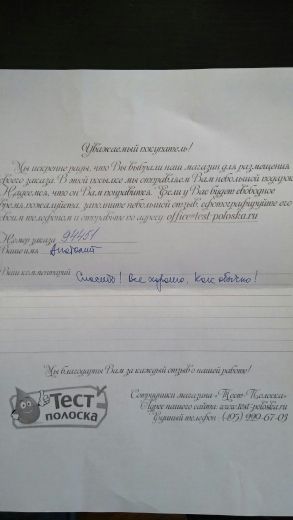 Уважаемый покупатель!
Мы искренне рады, что Вы выбрали наш магазин для размещения
своего заказа. В этой посылке мы отправляем Вам небольшой подарок.
Надеемся, что он Вам понравится. Если у Вас будет свободное
время, пожалуйста, заполните небольшой отзыв, сфотографируйте его
своим телефоном и отправьте по адресу office@test-poloska.ru
Номер заказа 94451
Ваше имя Анатолий
Ваш комментарий Спасибо! Все хорошо, как обычно!
Мы благодарны Вам за каждый отзыв о нашей работе!
Тест
полоска
Сотрудники магазина "Тест-Полоска"
Адрес нашего сайта: www.test-poloska.ru
Единый телефон (495) 999-67-03